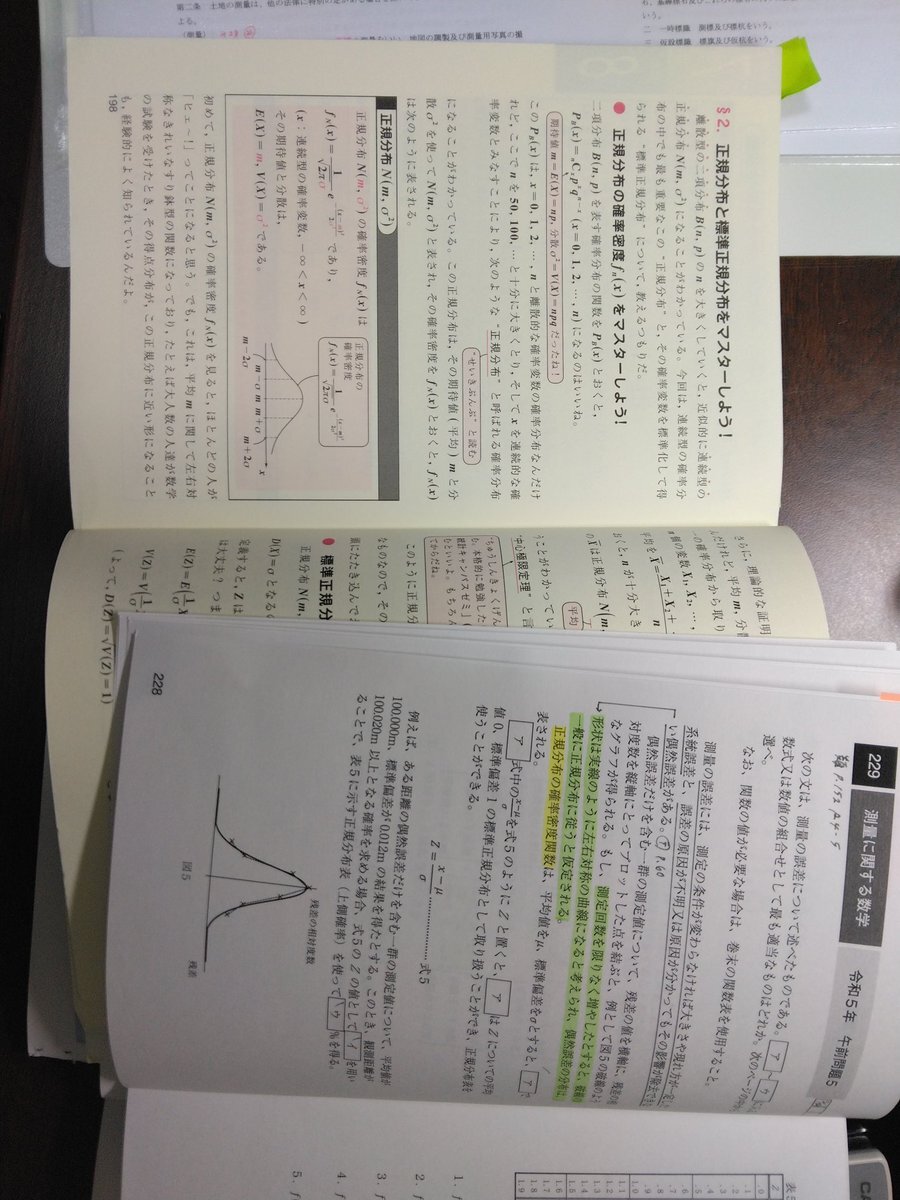 第二条 土地の測量は、他の法律に特別の
よる。
(測量)
地図の調製及び測量用写真の撮
いう。
一 一時標識 測標及び標杭をいう。
仮設標識 標旗及び仮杭をいう。
§2. 正規分布と標準正規分布をマスターしよう!
離散型の二項分布 B(n, p) の n を大きくしていくと、近似的に連続型の
正規分布 N(m, σ²) になることがわかっている。今回は、連続型の確率分
布の中でも最も重要なこの“正規分布”と、その確率変数を標準化して得
られる“標準正規分布”について、教えるつもりだ。
● 正規分布の確率密度 f_N(x) をマスターしよう!
二項分布 B(n, p) を表す確率分布の関数を P_B(x) とおくと、
P_B(x) = nCx p^x q^(n-x) (x = 0, 1, 2, …, n) になるのはいいね。
期待値 m = E(X) = np, 分散 σ² = V(X) = npq だったね!
この P_B(x) は、x = 0, 1, 2, …, n と離散的な確率変数の確率分布なんだけ
れど、ここで n を 50, 100, … と十分に大きくとり、そして x を連続的な確
率変数とみなすことにより、次のような“正規分布”と呼ばれる確率分布
“せいきぶんぷ”と読む
になることがわかっている。この正規分布は、その期待値(平均) m と分
散 σ² を使って N(m, σ²) と表され、その確率密度を f_N(x) とおくと、f_N(x)
は次のように表される。
正規分布 N(m, σ²)
正規分布 N(m, σ²) の確率密度 f_N(x) は
f_N(x) = 1/(√2π σ) e^(-(x-m)²/2σ²) であり、
(x:連続型の確率変数, −∞ < x < ∞)
その期待値と分散は、
E(X) = m, V(X) = σ² である。
正規分布の
確率密度
f_N(x) = 1/(√2π σ) e^(-(x-m)²/2σ²)
m−2σ m−σ m m+σ m+2σ x
初めて、正規分布 N(m, σ²) の確率密度 f_N(x) を見ると、ほとんどの人が
「ヒェ〜!」ってことになると思う。でも、これは、平均 m に関して左右対
称なきれいなすり鉢型の関数になっており、たとえば大人数の人達が数学
の試験を受けたとき、その得点分布が、この正規分布に近い形になること
も、経験的によく知られているんだよ。
198
さらに、理論的な証明
んだけれど、平均 m, 分
の確率分布から取り
変数 X₁, X₂, …,
平均を X̄ = X₁ + X₂ +
n
おくと、n が十分大き
X̄ は正規分布 N(m,
平均
うことがわかってい
中心極限定理” と言
“ちゅうしんきょくげん
も、本格的に勉強した
統計キャンパスゼミ」
むといいよ。もちろん
てからだね。
このように正規分
なものなので、その
頭にたたき込んでお
● 標準正規分
正規分布 N(m,
D(X) = σ となるの
定義すると、Z は
E(Z) = E(1/σ X
V(Z) = V(1/σ
は大丈夫? つま
(よって、D(Z) = √V(Z) = 1)
229 測量に関する数学 令和5年 午前問題5
次の文は、測量の誤差について述べたものである。 ア 〜 ウ
数式又は数値の組合せとして最も適当なものはどれか。次のページの中から
選べ。
なお、関数の値が必要な場合は、巻末の関数表を使用すること。
測量の誤差には、測定の条件が変わらなければ大きさや現れ方が一定
系統誤差と、誤差の原因が不明又は原因が分かってもその影響が除去でき
い偶然誤差がある。 P.60
偶然誤差だけを含む一群の測定値について、残差の値を横軸に、残差の相
対度数を縦軸にとってプロットした点を結ぶと、例として図5の破線のよう
なグラフが得られる。もし、測定回数を限りなく増やしたとすると、
形状は実線のように左右対称の曲線になると考えられ、偶然誤差の分布は、
一般に正規分布に従うと仮定される。
正規分布の確率密度関数は、平均値をμ、標準偏差をσとすると、 ア で
表される。
ア 式中の (x−μ)/σ を式5のように Z と置くと、 ア は Z についての平均
値0、標準偏差1の標準正規分布として取り扱うことができ、正規分布表を
使うことができる。
Z = (x−μ)/σ ……………式5
例えば、ある距離の偶然誤差だけを含む一群の測定値について、平均値が
100.000m、標準偏差が0.012mの結果を得たとする。このとき、観測距離が
100.020m以上となる確率を求める場合、式5の Z の値として イ を用い
ることで、表5に示す正規分布表(上側確率)を使って ウ %を得る。
残差の相対度数
残差
図5
228
表5
Z
1.0
1.1
1.2
1.3
1.4
1.5
1.6
1.7
1.8
1.9
1. f
2. f
3. f
4. f
5. f